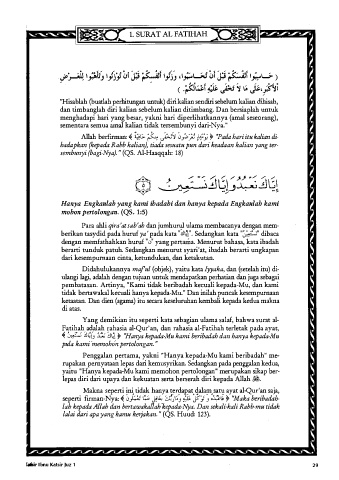 1. SURAT AL FATIHAH
( حَاسِبُوا أَنْفُسَكُمْ قَبْلَ أَنْ تُحَاسَبُوا، وَزِنُوا أَنْفُسَكُمْ قَبْلَ أَنْ تُوزَنُوا وَتَأَهَّبُوا لِلْعَرْضِ
الْأَكْبَرِ عَلَى مَا لَا تَخْفَى عَلَيْهِ أَعْمَالُكُمْ. )
"Hisablah (buatlah perhitungan untuk) diri kalian sendiri sebelum kalian dihisab,
dan timbanglah diri kalian sebelum kalian ditimbang. Dan bersiaplah untuk
menghadapi hari yang besar, yakni hari diperlihatkannya (amal seseorang),
sementara semua amal kalian tidak tersembunyi dari-Nya."
Allah berfirman: ﴿ يَوْمَئِذٍ تُعْرَضُونَ لَا تَخْفَى مِنكُمْ خَافِيَةٌ ﴾ "Pada hari itu kalian di-
hadapkan (kepada Rabb kalian), tiada suatu pun dari keadaan kalian yang ter-
sembunyi (bagi-Nya)." (QS. Al-Haaqqah: 18)
إِيَّاكَ نَعْبُدُ وَإِيَّاكَ نَسْتَعِينُ ٥
Hanya Engkaulah yang kami ibadahi dan hanya kepada Engkaulah kami
mohon pertolongan. (QS. 1:5)
Para ahli qira'at sab'ah dan jumhurul ulama membacanya dengan mem-
berikan tasydid pada huruf ya' pada kata "إِيَّاكَ". Sedangkan kata "نَسْتَعِينُ" dibaca
dengan memfathahkan huruf "ن" yang pertama. Menurut bahasa, kata ibadah
berarti tunduk patuh. Sedangkan menurut syari'at, ibadah berarti ungkapan
dari kesempurnaan cinta, ketundukan, dan ketakutan.
Didahulukannya maf'ul (objek), yaitu kata Iyyaka, dan (setelah itu) di-
ulangi lagi, adalah dengan tujuan untuk mendapatkan perhatian dan juga sebagai
pembatasan. Artinya, "Kami tidak beribadah kecuali kepada-Mu, dan kami
tidak bertawakal kecuali hanya kepada-Mu." Dan inilah puncak kesempurnaan
ketaatan. Dan dien (agama) itu secara keseluruhan kembali kepada kedua makna
di atas.
Yang demikian itu seperti kata sebagian ulama salaf, bahwa surat al-
Fatihah adalah rahasia al-Qur'an, dan rahasia al-Fatihah terletak pada ayat,
﴿ إِيَّاكَ نَعْبُدُ وَإِيَّاكَ نَسْتَعِينُ ﴾ "Hanya kepada-Mu kami beribadah dan hanya kepada-Mu
pula kami memohon pertolongan."
Penggalan pertama, yakni "Hanya kepada-Mu kami beribadah" me-
rupakan pernyataan lepas dari kemusyrikan. Sedangkan pada penggalan kedua,
yaitu "Hanya kepada-Mu kami memohon pertolongan" merupakan sikap ber-
lepas diri dari upaya dan kekuatan serta berserah diri kepada Allah ﷻ.
Makna seperti ini tidak hanya terdapat dalam satu ayat al-Qur'an saja,
seperti firman-Nya: ﴿ فَاعْبُدْهُ وَتَوَكَّلْ عَلَيْهِ وَمَا رَبُّكَ بِغَافِلٍ عَمَّا تَعْمَلُونَ ﴾ "Maka beribadah-
lah kepada Allah dan bertawakkallah kepada-Nya. Dan sekali-kali Rabb-mu tidak
lalai dari apa yang kamu kerjakan." (QS. Huud: 123).
Tafsir Ibnu Katsir Juz 1
29